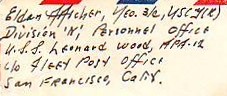 Eldon Afficher, Yeo. 3/c, USCG(R)
Division "N", Personnel Office
U.S.S. Leonard Wood, APA-12
c/o Fleet Post Office
San Francisco, Calif.